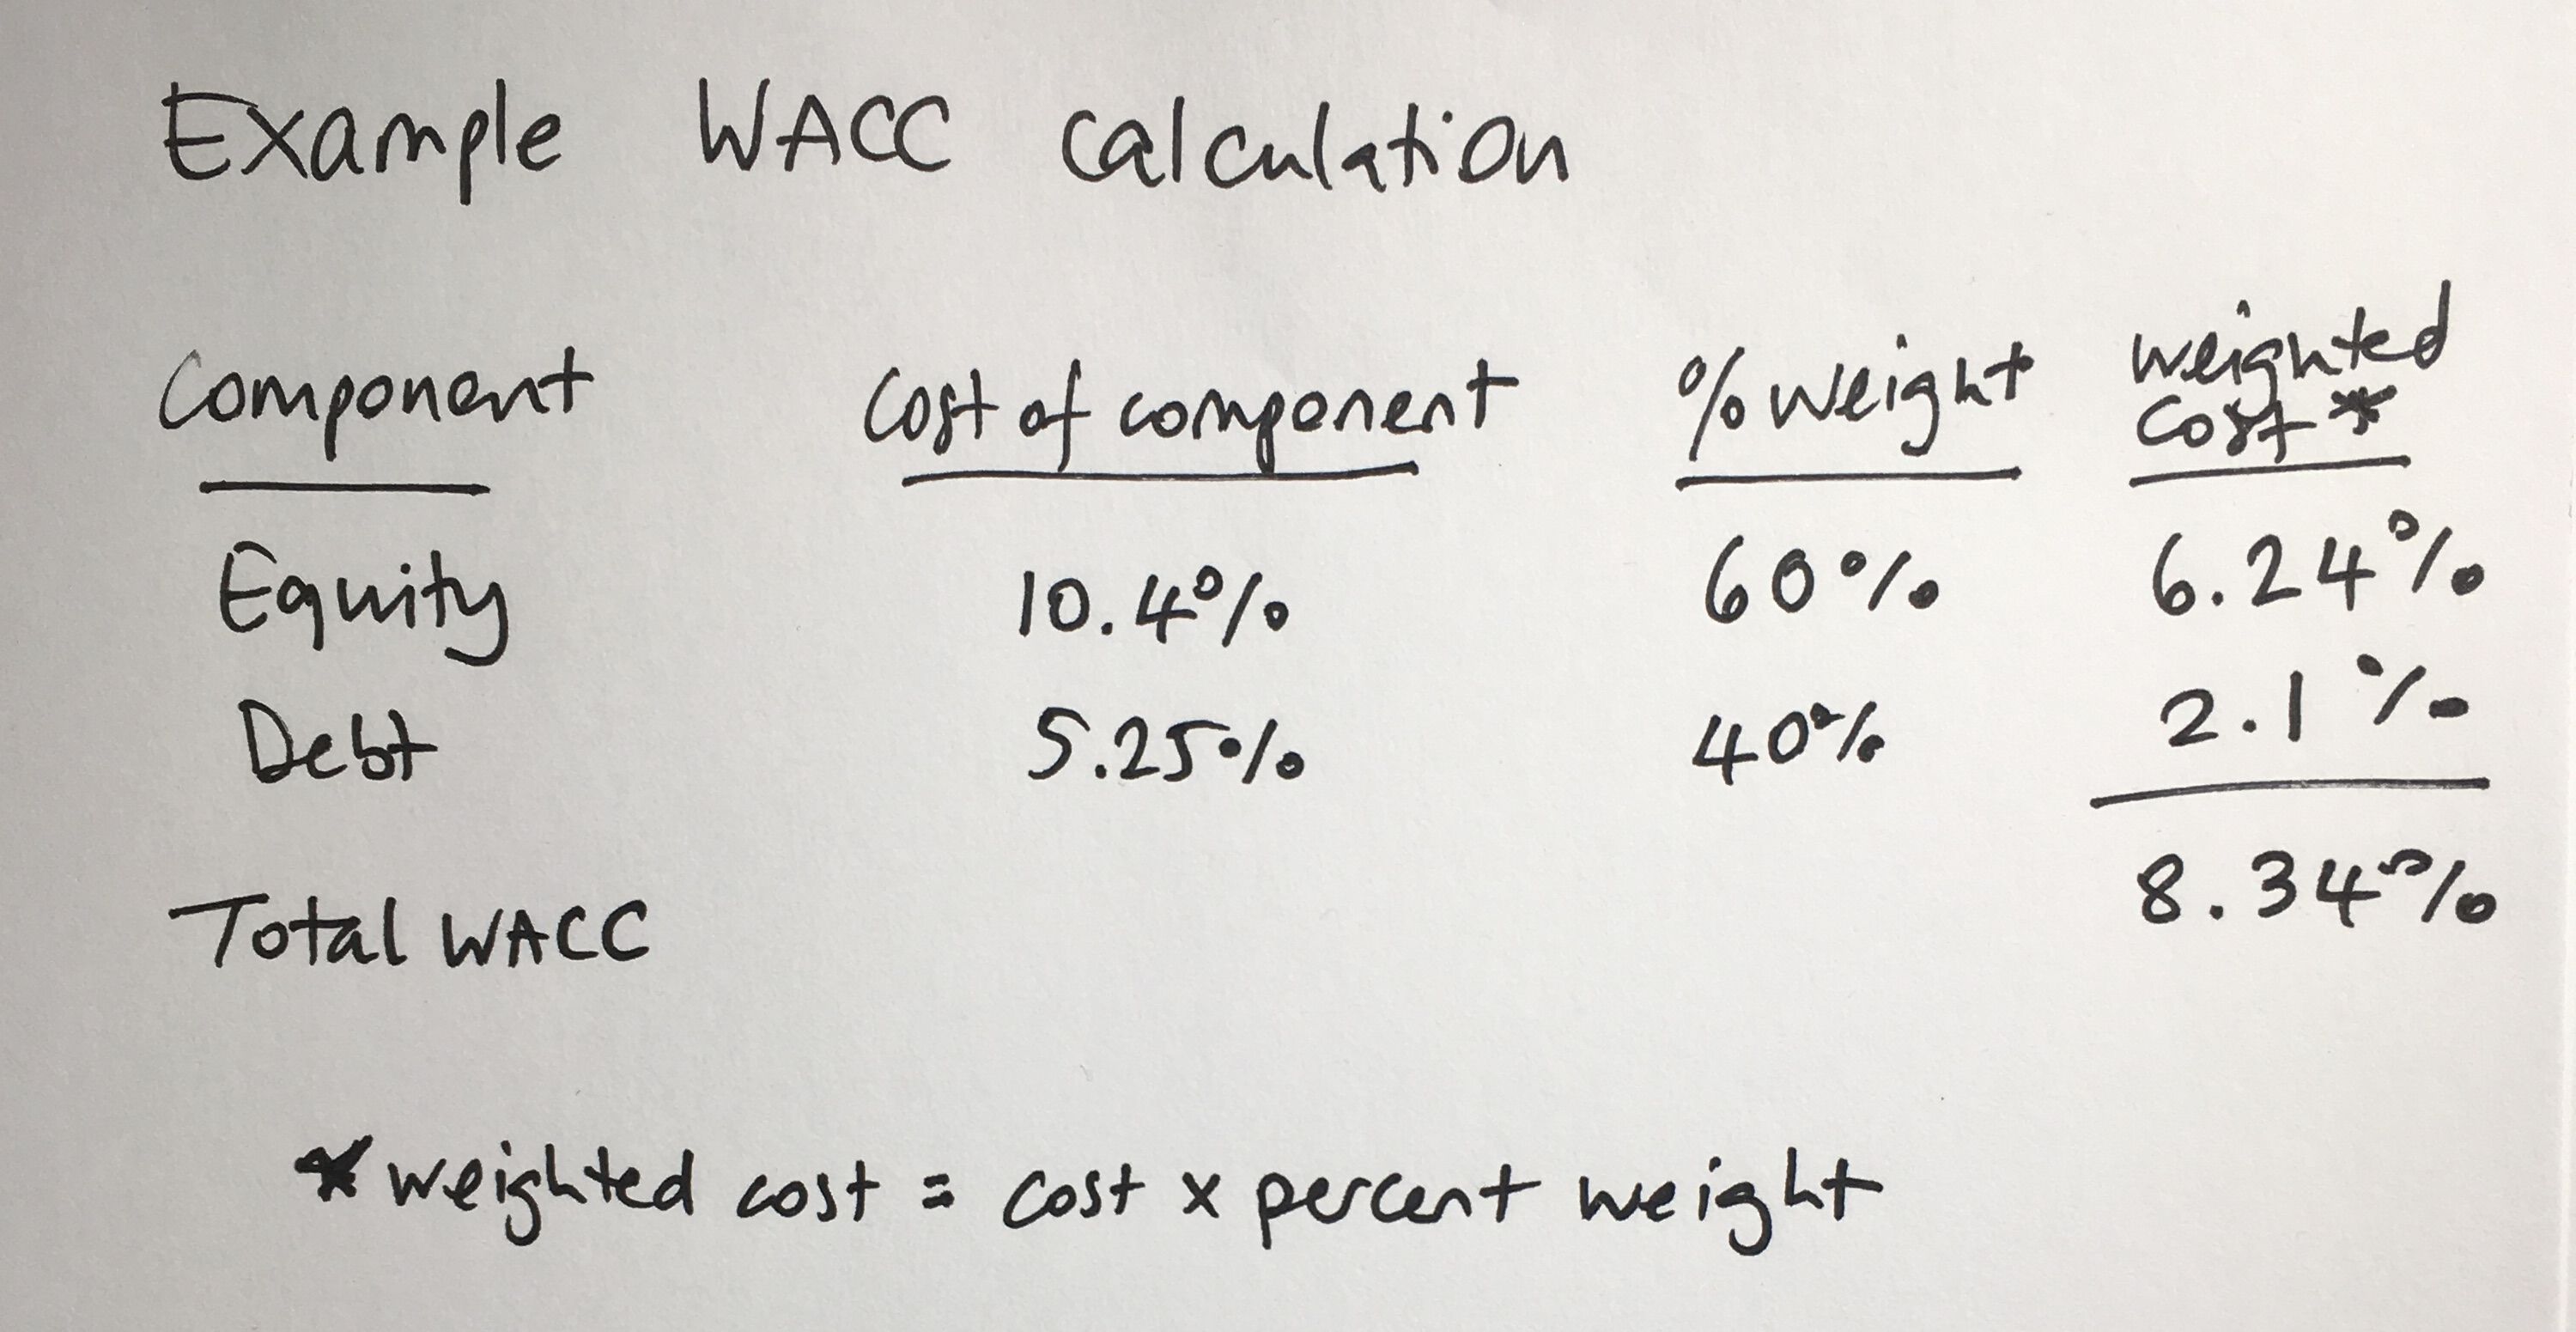 Example WACC calculation
Component Cost of component % weight weighted cost *
Equity 10.4% 60% 6.24%
Debt 5.25% 40% 2.1%
Total WACC 8.34%
* weighted cost = cost x percent weight